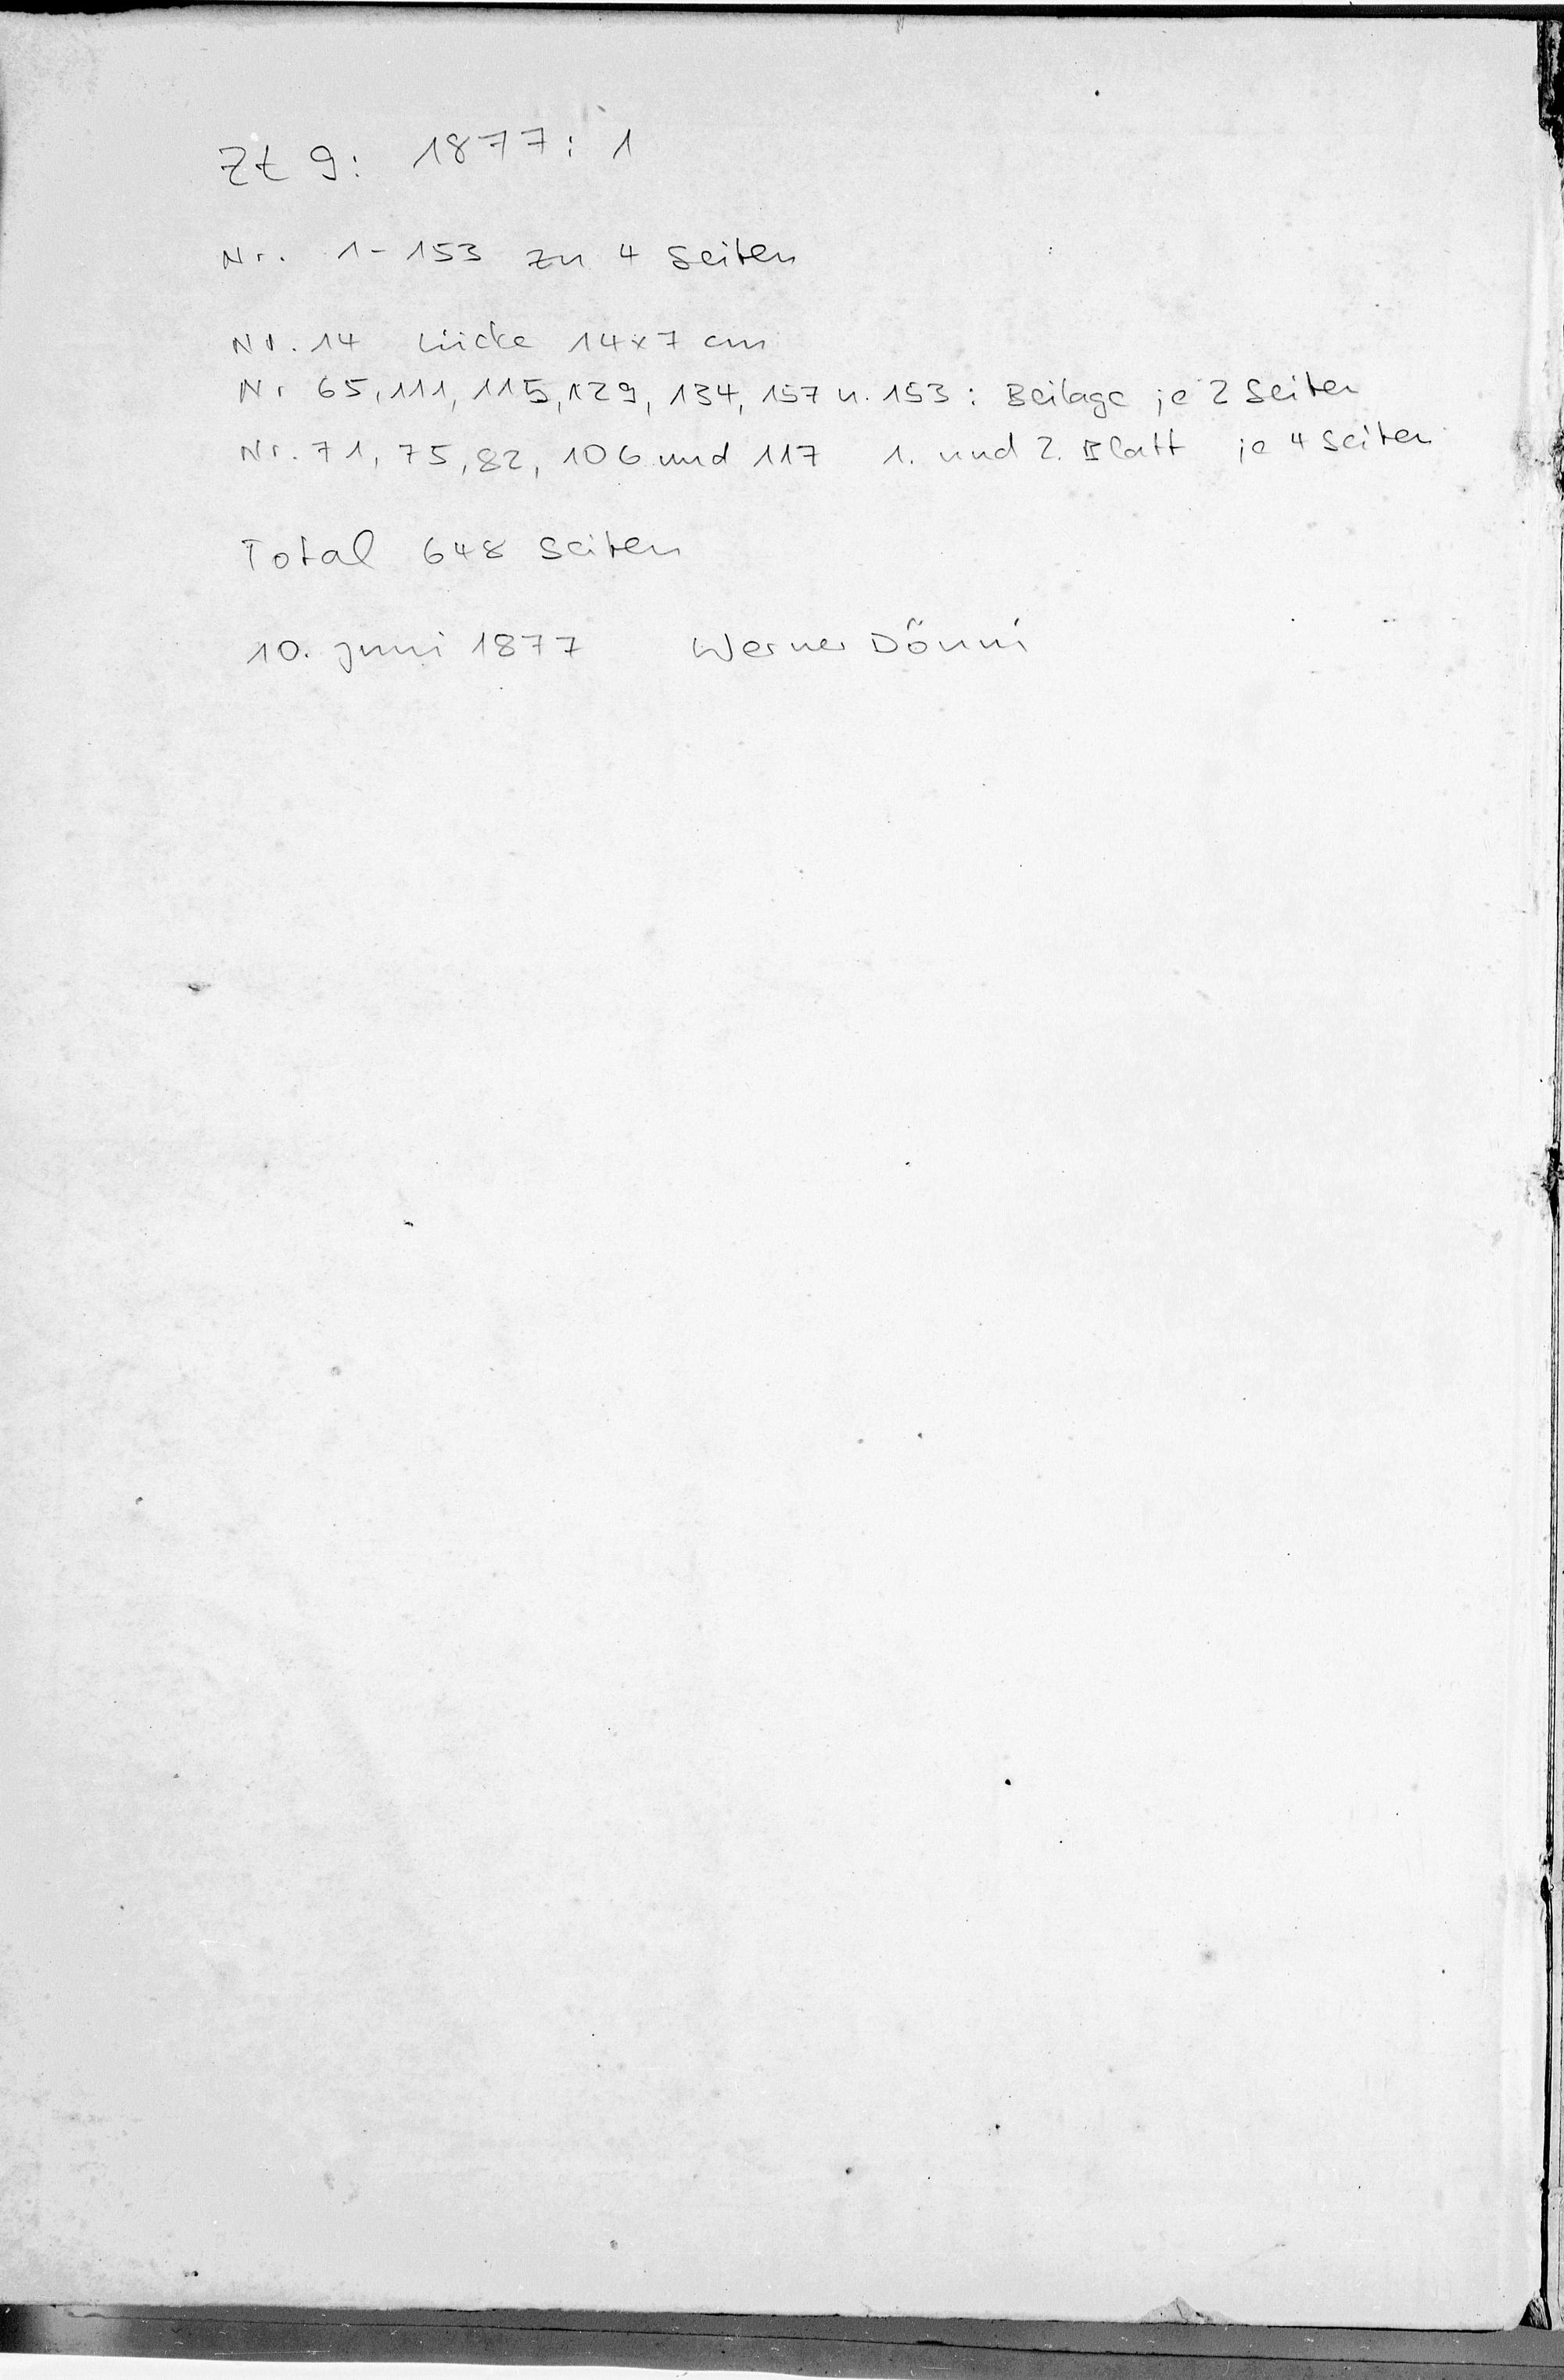 Zt 9: 1877: 1
Nr. 1-153 zu 4 Seiten
Nr. 14 Lücke 14x7 cm
Nr 65, 111, 115, 129, 134, 157 u. 153: Beilage je 2 Seiten
Nr. 71, 75, 82, 106 und 117 1. und 2. Blatt je 4 Seiten
Total 648 Seiten
10. Juni 1877 Werner Dönni